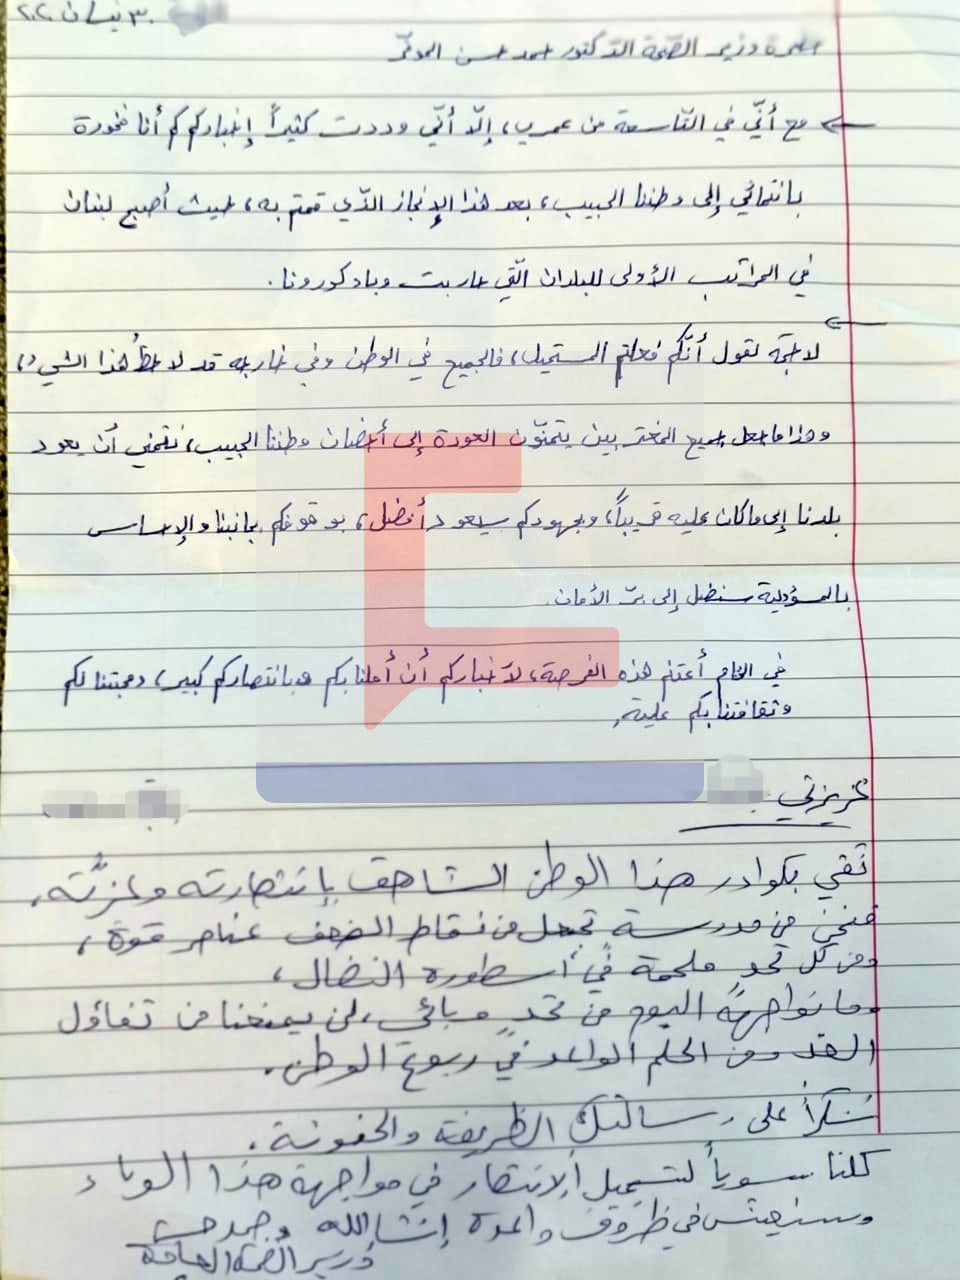 ٣٠ نيسان ٢٠٢٠
حضرة وزير الصّحّة الدّكتور حمد حسن الموقّر
مع أنّي في التّاسعة من عمري، إلّا أنّي وددت كثيراً إخباركم كم أنا فخورة
بانتمائي إلى وطننا الحبيب، بعد هذا الإنجاز الذّي قمتم به، حيث أصبح لبنان
في المراتب الأولى للبلدان الّتي حاربت وباء كورونا.
لا حاجة لقول أنّكم فعلتم المستحيل، فالجميع في الوطن وفي خارجه قد لاحظ هذا الشيء،
وهذا ما جعل جميع المغتربين يتمنّون العودة إلى أحضان وطننا الحبيب، نتمنى أن يعود
بلدنا إلى ما كان عليه قريباً، وبجهودكم سيعود أفضل، بوقوفكم بجانبنا والإحساس
بالمسؤولية سنصل إلى برّ الأمان.
في الختام أغتنم هذه الفرصة، لأخباركم أن أملنا بكم وبانتصاركم كبير، ومحبتنا لكم
وثقافتنا بكم
عزيزتي
ثقي بكوادر هذا الوطن الشاهق بإنتصارته وعزّته،
فنحن من مدرسة تجعل من نقاط الضعف عناصر قوة،
ومن كل تحدٍ ملحمة في أسطورة النضال،
وما نواجهه اليوم من تحدٍ وبائي، لن يمنعنا من تفاؤل
الغد ومن الحلم الواعد في ربوع الوطن.
شكراً على رسالتك الظريفة والحنونة.
كلنا سوياً لتسجيل الإنتصار في مواجهة هذا الوباء
وسنعيش في ظروف واعدة إنشالله د. حمد حسن
وزير الصّحة العامة